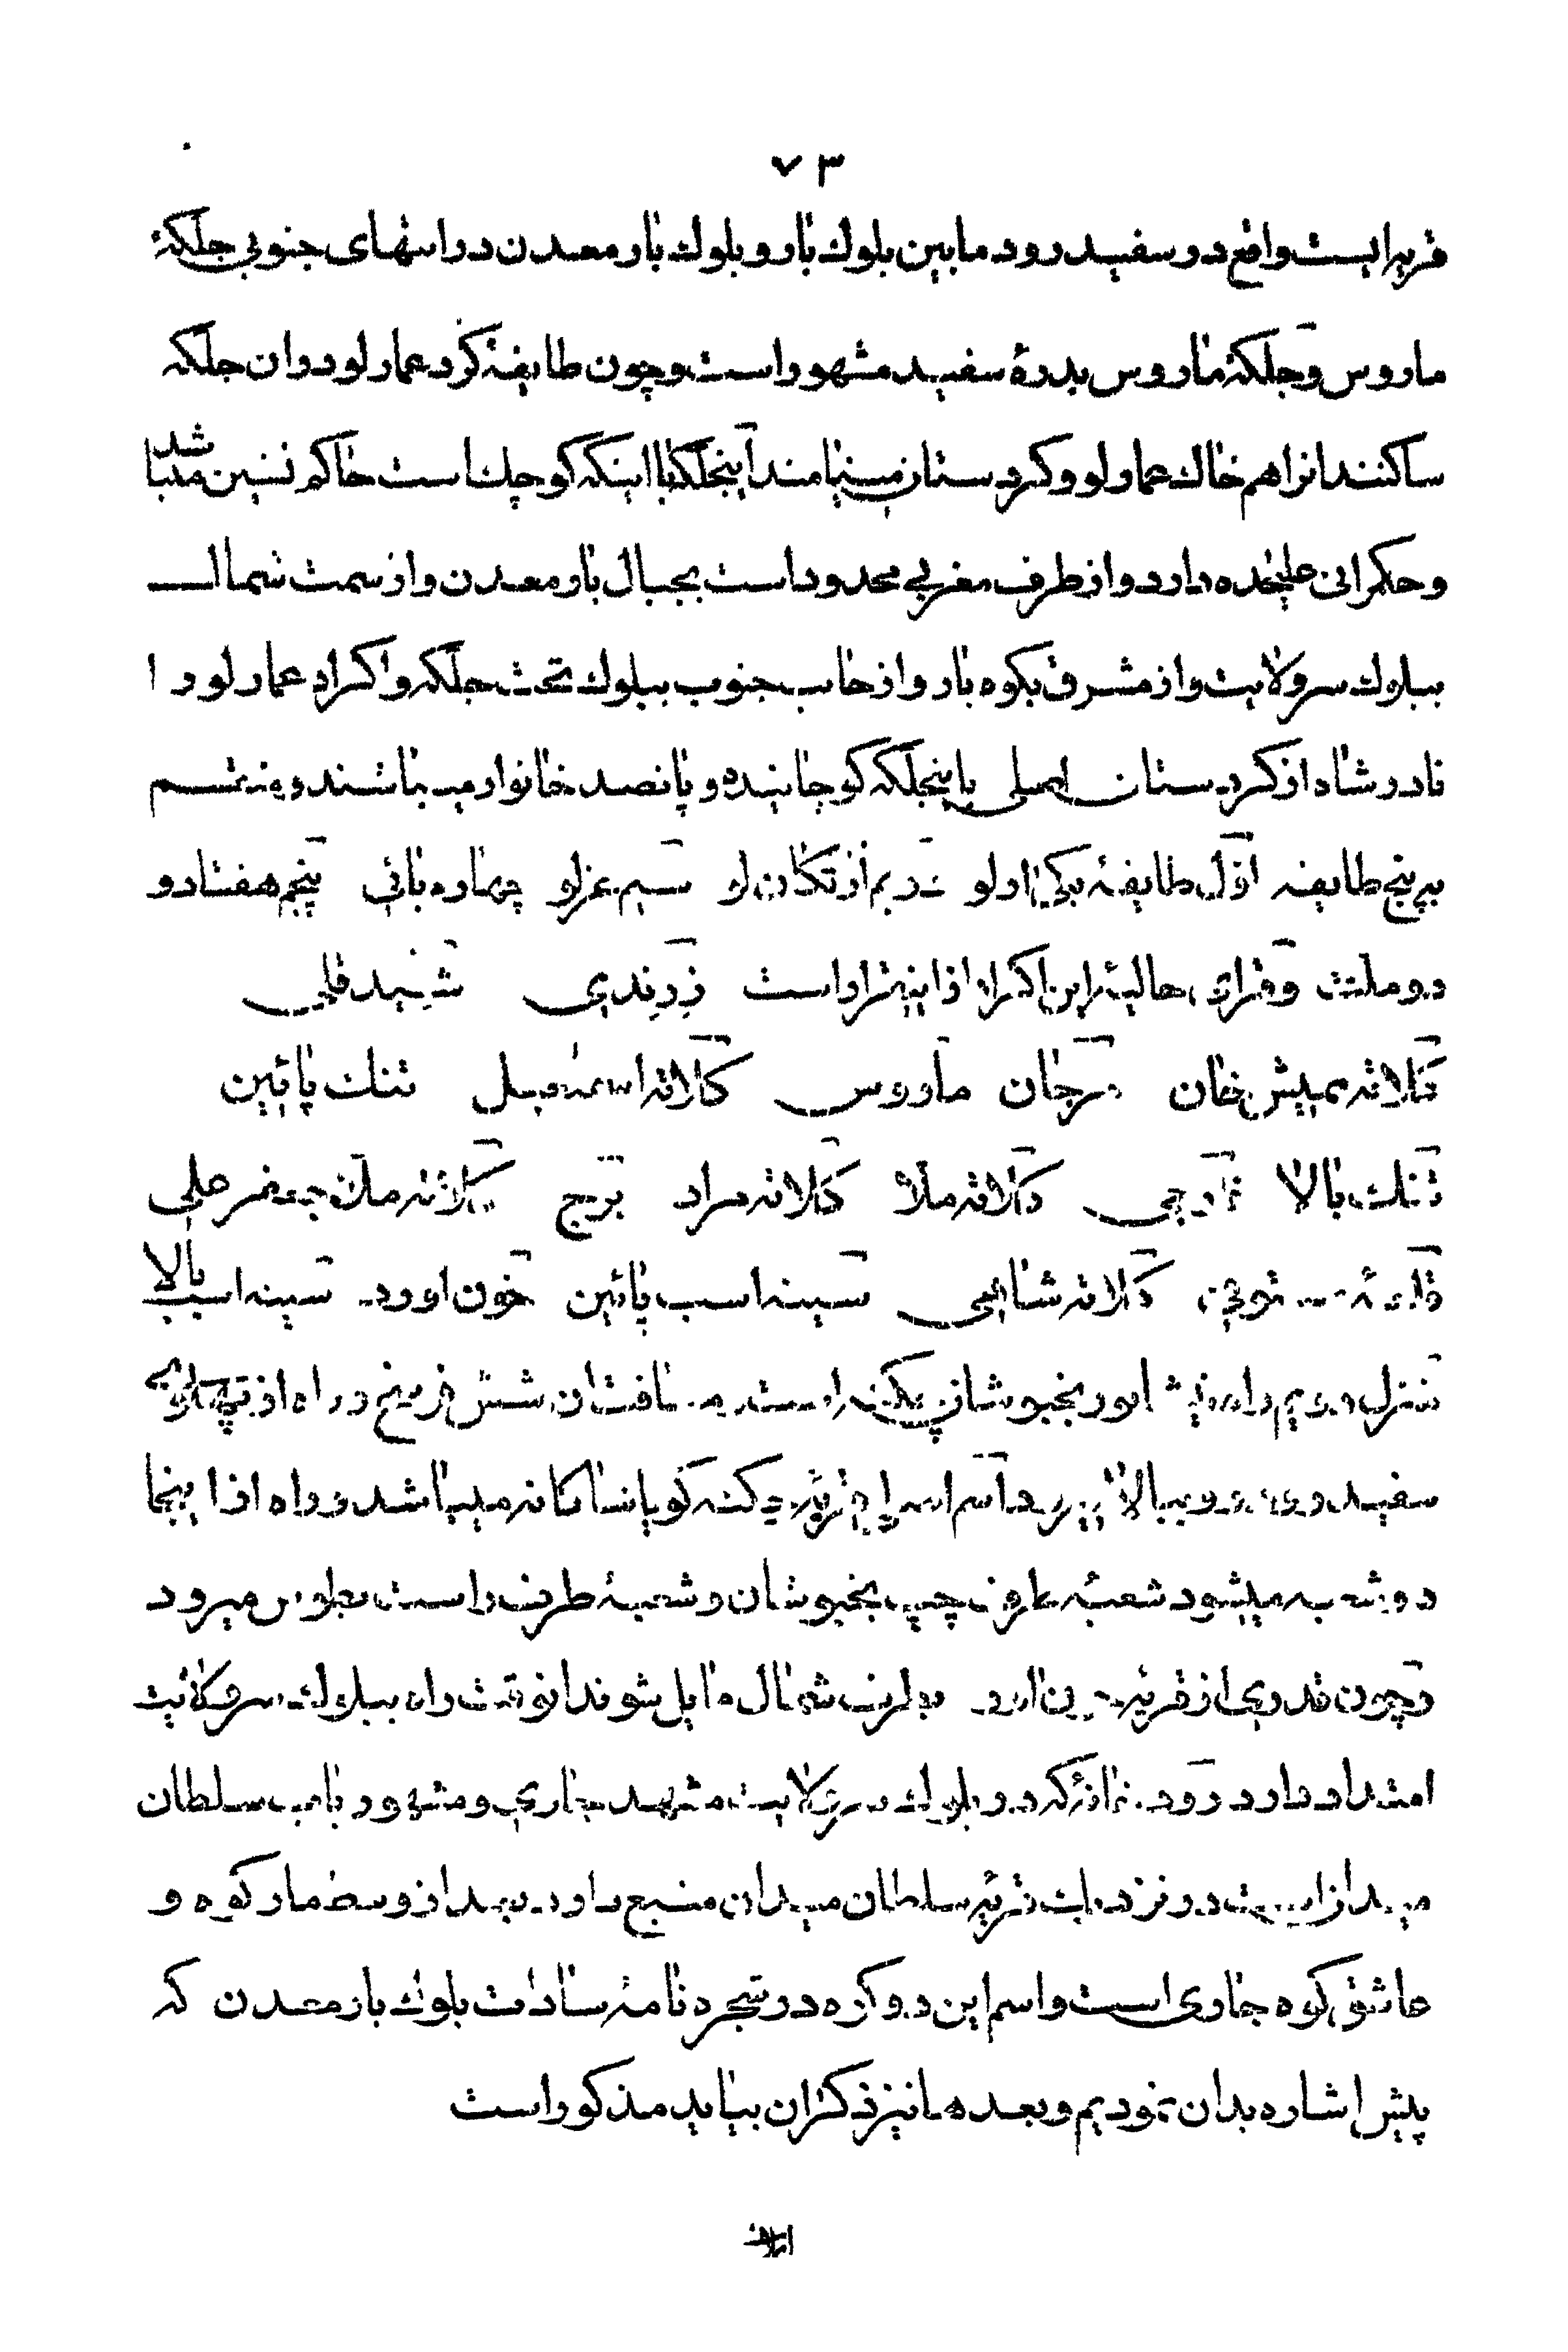 ٧٣
قریه‌ایست واقع در سفید رود مابین بلوك بار و بلوك بار معدن در انتهای جنوبی جلگهٔ
ماروس و جلگهٔ ماروس بدرهٔ سفید مشهور است و چون طایفهٔ کرد عمارلو در ان جلگه
ساکنند انرا هم خاك عمارلو و کردستان مینامند اینجلگه با اینکه کوچك است حاکم نشین میباشد
و حکمرانی علیحده دارد و از طرف مغربی محدود است بجبال بار معدن و از سمت شمال
ببلوك سرولایت و از مشرق بکوه بار و از جانب جنوب ببلوك تحت جلگه و اکراد عمارلو را
نادر شاه از کردستان اصلی باینجلگه کوچانیده و پانصد خانوار میباشند و منقسم
به پنج طایفه اول طایفهٔ دویم سیم عزلو چهارم بانی پنجم هفتاد و
دو ملت و قرای حالیهٔ این اکراد از اینقرار است زرندی شیید قلی
کلاته میش خان مرجان ماروس کلاته اسمعیل تنك پائین
تنك بالا کلاته ملا کلاته مراد برج کلاته ملا جعفر علی
قلعهٔ کلاته شاهی سینه اسب پائین خون اورد سینه اسب بالا
منزل دویم راه نیشابور بخبوشان است مسافت ان شش فرسخ و راه از
سفید رو ببالا میرود تا سراچهٔ قریهٔ میباشد و راه از اینجا
دو شعبه میشود شعبهٔ طرف چپ بخبوشان و شعبهٔ طرف راست بطوس میرود
و چون قدری از قریهٔ خون اورد بطرف شمال مایل شوند انوقت راه ببلوك سرولایت
امتداد دارد رودخانهٔ که در بلوك سرولایت مشهد جاری و مشهور باب سلطان
میدانست در نزدیك قریهٔ سلطان میدان منبع دارد بعد از وسط مار کوه و
عاشق کوه جاری است و اسم این دو کوه در شجره نامهٔ سادات بلوك بار معدن که
پیش اشاره بدان نمودیم و بعدها نیز ذکر ان بیاید مذکور است